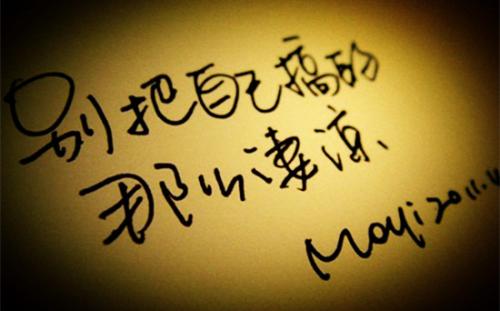 别把自己搞的
那么凄凉、
Moyi 2011.11